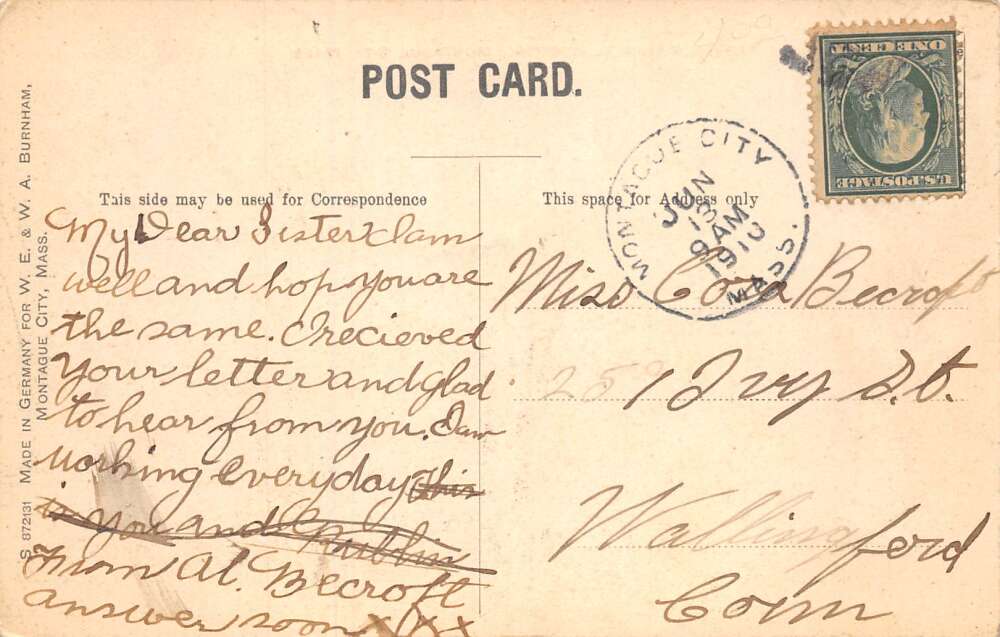 POST CARD.
This side may be used for Correspondence
This space for Address only
MONTAGUE CITY
JUN
13
9 AM
1910
MASS.
ONE CENT
U.S. POSTAGE
My Dear Sister I am
well and hop you are
the same. I recieved
your letter and glad
to hear from you. I am
working everyday this
is you and
From Al. Becroft
answer soon x x x
Miss Cora Becroft
251 Ivy St.
Wallingford
Conn
S 872131 MADE IN GERMANY FOR W. E. & W. A. BURNHAM,
MONTAGUE CITY, MASS.